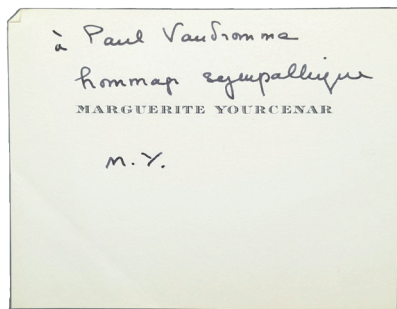 à Paul Vandromme
hommage sympathique
MARGUERITE YOURCENAR
M. Y.